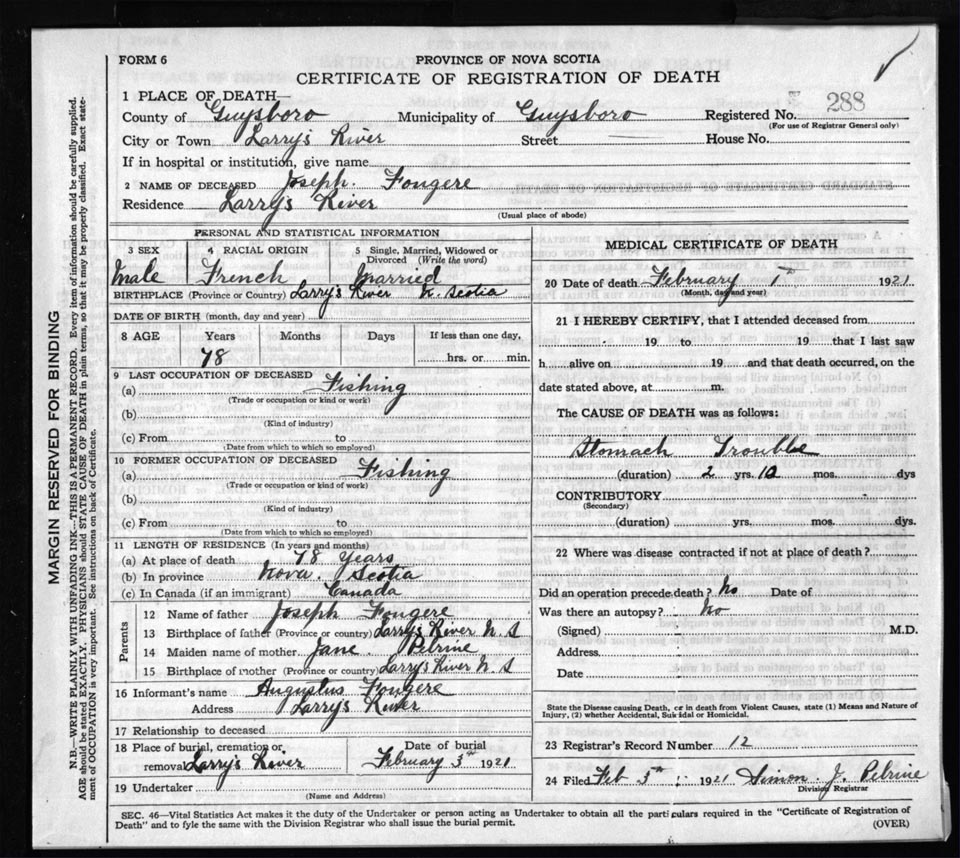 FORM 6
PROVINCE OF NOVA SCOTIA
CERTIFICATE OF REGISTRATION OF DEATH
1 PLACE OF DEATH—
County of Guysboro Municipality of Guysboro Registered No. 288
(For use of Registrar General only)
City or Town Larry's River Street House No.
If in hospital or institution, give name
2 NAME OF DECEASED Joseph. Fougere
Residence Larry's River
(Usual place of abode)
PERSONAL AND STATISTICAL INFORMATION
3 SEX 4 RACIAL ORIGIN 5 Single, Married, Widowed or Divorced (Write the word)
Male French Married
BIRTHPLACE (Province or Country) Larry's River N. Scotia
DATE OF BIRTH (month, day and year)
8 AGE Years Months Days If less than one day,
78 hrs. or min.
9 LAST OCCUPATION OF DECEASED
(a) Fishing
(Trade or occupation or kind or work)
(b)
(Kind of industry)
(c) From to
(Date from which to which so employed)
10 FORMER OCCUPATION OF DECEASED
(a) Fishing
(Trade or occupation or kind of work)
(b)
(Kind of industry)
(c) From to
(Date from which to which so employed)
11 LENGTH OF RESIDENCE (In years and months)
(a) At place of death 78 Years
(b) In province Nova. Scotia
(c) In Canada (if an immigrant) Canada
Parents
12 Name of father Joseph Fougere
13 Birthplace of father (Province or country) Larry's River N. S
14 Maiden name of mother Jane Pelrine
15 Birthplace of mother (Province or country) Larry's River N S
16 Informant's name Augustus Fougere
Address Larry's River
17 Relationship to deceased
18 Place of burial, cremation or Date of burial
removal Larry's River February 3rd 1921
19 Undertaker
(Name and Address)
MEDICAL CERTIFICATE OF DEATH
20 Date of death February 1st 1921
(Month, day and year)
21 I HEREBY CERTIFY, that I attended deceased from
19 to 19 that I last saw
h alive on 19 and that death occurred, on the
date stated above, at m.
The CAUSE OF DEATH was as follows:
Stomach Trouble
(duration) 2 yrs. 10 mos. dys
CONTRIBUTORY
(Secondary)
(duration) yrs. mos. dys.
22 Where was disease contracted if not at place of death?
Did an operation precede death? No Date of
Was there an autopsy? No
(Signed) M.D.
Address
Date
State the Disease causing Death, or in death from Violent Causes, state (1) Means and Nature of
Injury, (2) whether Accidental, Suicidal or Homicidal.
23 Registrar's Record Number 12
24 Filed Feb 5th 1921 Simon J. Pelrine
Division Registrar
SEC. 46—Vital Statistics Act makes it the duty of the Undertaker or person acting as Undertaker to obtain all the particulars required in the "Certificate of Registration of
Death" and to fyle the same with the Division Registrar who shall issue the burial permit.
(OVER)
MARGIN RESERVED FOR BINDING
N.B.—WRITE PLAINLY WITH UNFADING INK—THIS IS A PERMANENT RECORD. Every item of information should be carefully supplied.
AGE should be stated EXACTLY. PHYSICIANS should STATE CAUSE OF DEATH in plain terms, so that it may be properly classified. Exact state-
ment of OCCUPATION is very important. See instructions on back of Certificate.